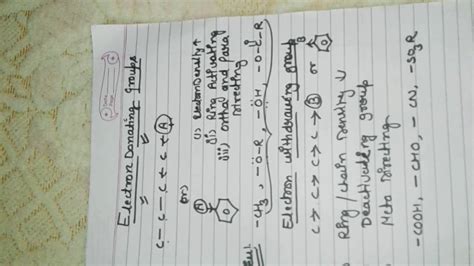 Electron Donating groups
C - C - C ← C ← (A)
or)
(A)
(i) Electron Density ↑
(ii) Ring Activating
(iii) ortho and para
directing
-CH3, -Ö-R, -ÖH, -O-C-R
O
Electron withdrawing group
C → C → C → C → (B) or
B
Ring/chain Density ↓
Deactivating group
Meta directing
-COOH, -CHO, -CN, -SO3R